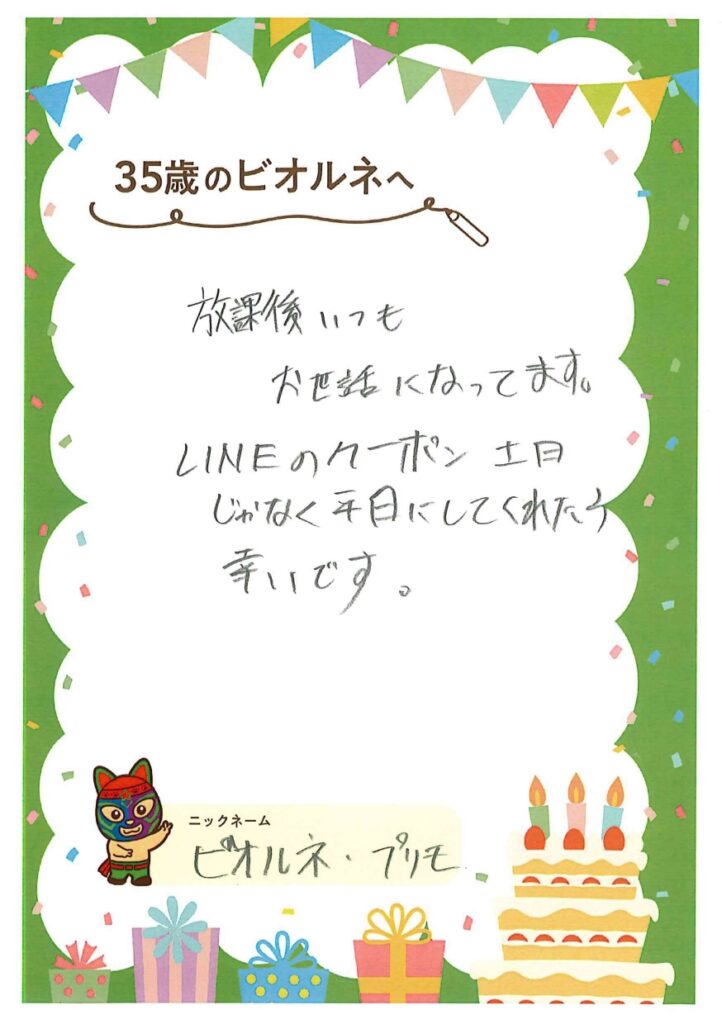 35歳のビオルネへ
放課後いつも
お世話になってます。
LINEのクーポン 土日
じゃなく平日にしてくれたら
幸いです。
ニックネーム
ビオルネ・プリモ